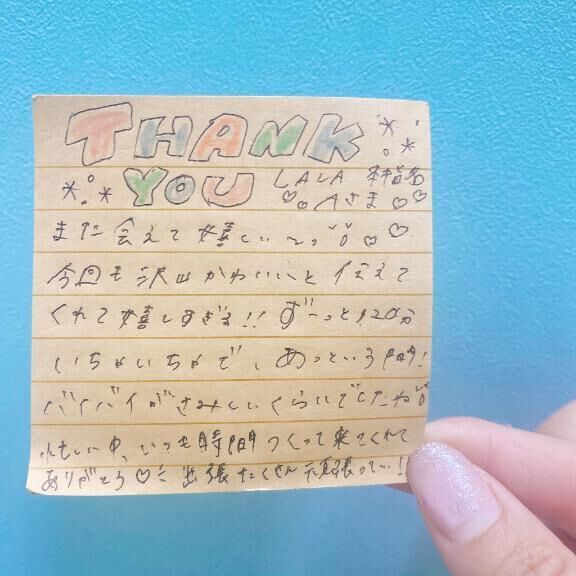 THANK
YOU LALA 本指名
Aさま
また会えて嬉しいっ
今回も沢山かわいいと伝えて
くれて嬉しすぎる!! ずーっと120分
いちゃいちゃで、あっという間!
バイバイがさみしいくらいでしたね
忙しい中、いつも時間つくって来てくれて
ありがとう♡ 出張たくさん頑張ってい!